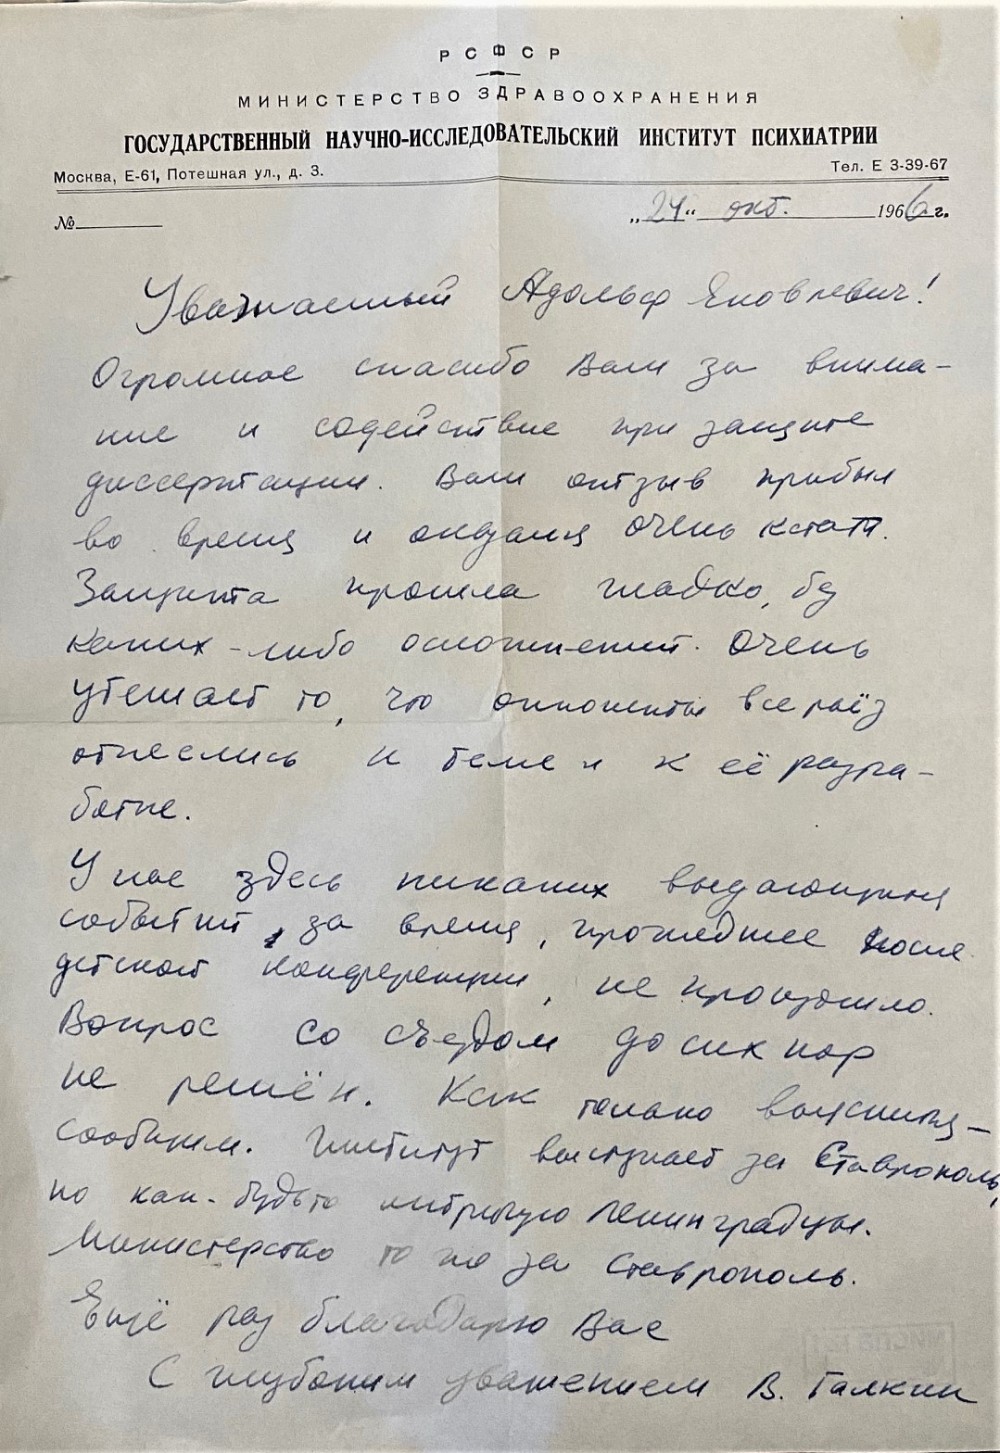 РСФСР
МИНИСТЕРСТВО ЗДРАВООХРАНЕНИЯ
ГОСУДАРСТВЕННЫЙ НАУЧНО-ИССЛЕДОВАТЕЛЬСКИЙ ИНСТИТУТ ПСИХИАТРИИ
Москва, Е-61, Потешная ул., д. 3.
Тел. Е 3-39-67
№
„24“ окт. 1966 г.
Уважаемый Адольф Яковлевич!
Огромное спасибо Вам за внима-
ние и содействие при защите
диссертации. Ваш отзыв прибыл
во время и оказался очень кстати.
Защита прошла гладко, без
каких-либо осложнений. Очень
утешает то, что оппоненты всерьёз
отнеслись к теме и к её разра-
ботке.
У нас здесь никаких выдающихся
событий, за время, прошедшее после
детской конференции, не произошло.
Вопрос со съездом до сих пор
не решён. Как только выяснится –
сообщим. Институт выступает за Ставрополь,
но как-будто ленинградцы.
Министерство то же за Ставрополь.
Ещё раз благодарю Вас
С глубоким уважением В. Галкин